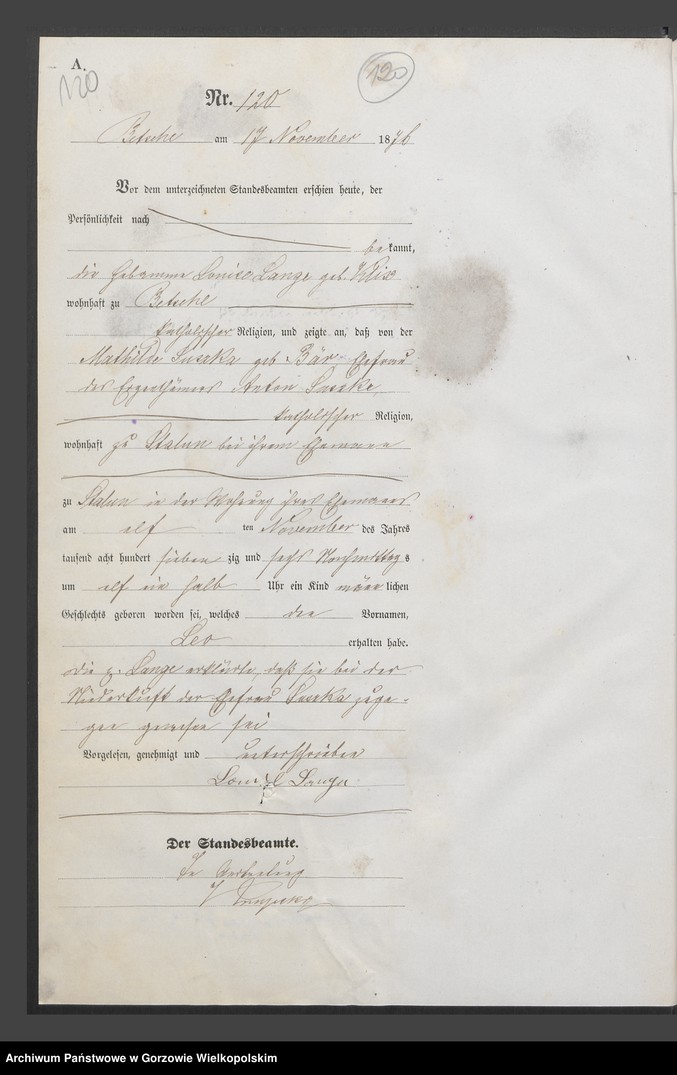 A.
120
120
Nr. 120
Betsche am 17 November 1876
Vor dem unterzeichneten Standesbeamten erschien heute, der
Persönlichkeit nach
bekannt,
die Hebamme Louise Lange geb.
wohnhaft zu Betsche
katholischer Religion, und zeigte an, daß von der
Mathilde geb. Bär Ehefrau
des Eigenthümers Anton
katholischer Religion,
wohnhaft zu Stalun bei ihrem Ehemanne
zu Stalun in der Wohnung ihres Ehemannes
am elf ten November des Jahres
tausend acht hundert sieben zig und sechs Nachmittags
um elf ein halb Uhr ein Kind männlichen
Geschlechts geboren worden sei, welches den Vornamen,
Leo erhalten habe.
Die p. Lange erklärte, daß sie bei der
Niederkunft der Ehefrau zuge-
gen gewesen sei
Vorgelesen, genehmigt und unterschrieben
Lange
Der Standesbeamte.
In Vertretung
Archiwum Państwowe w Gorzowie Wielkopolskim